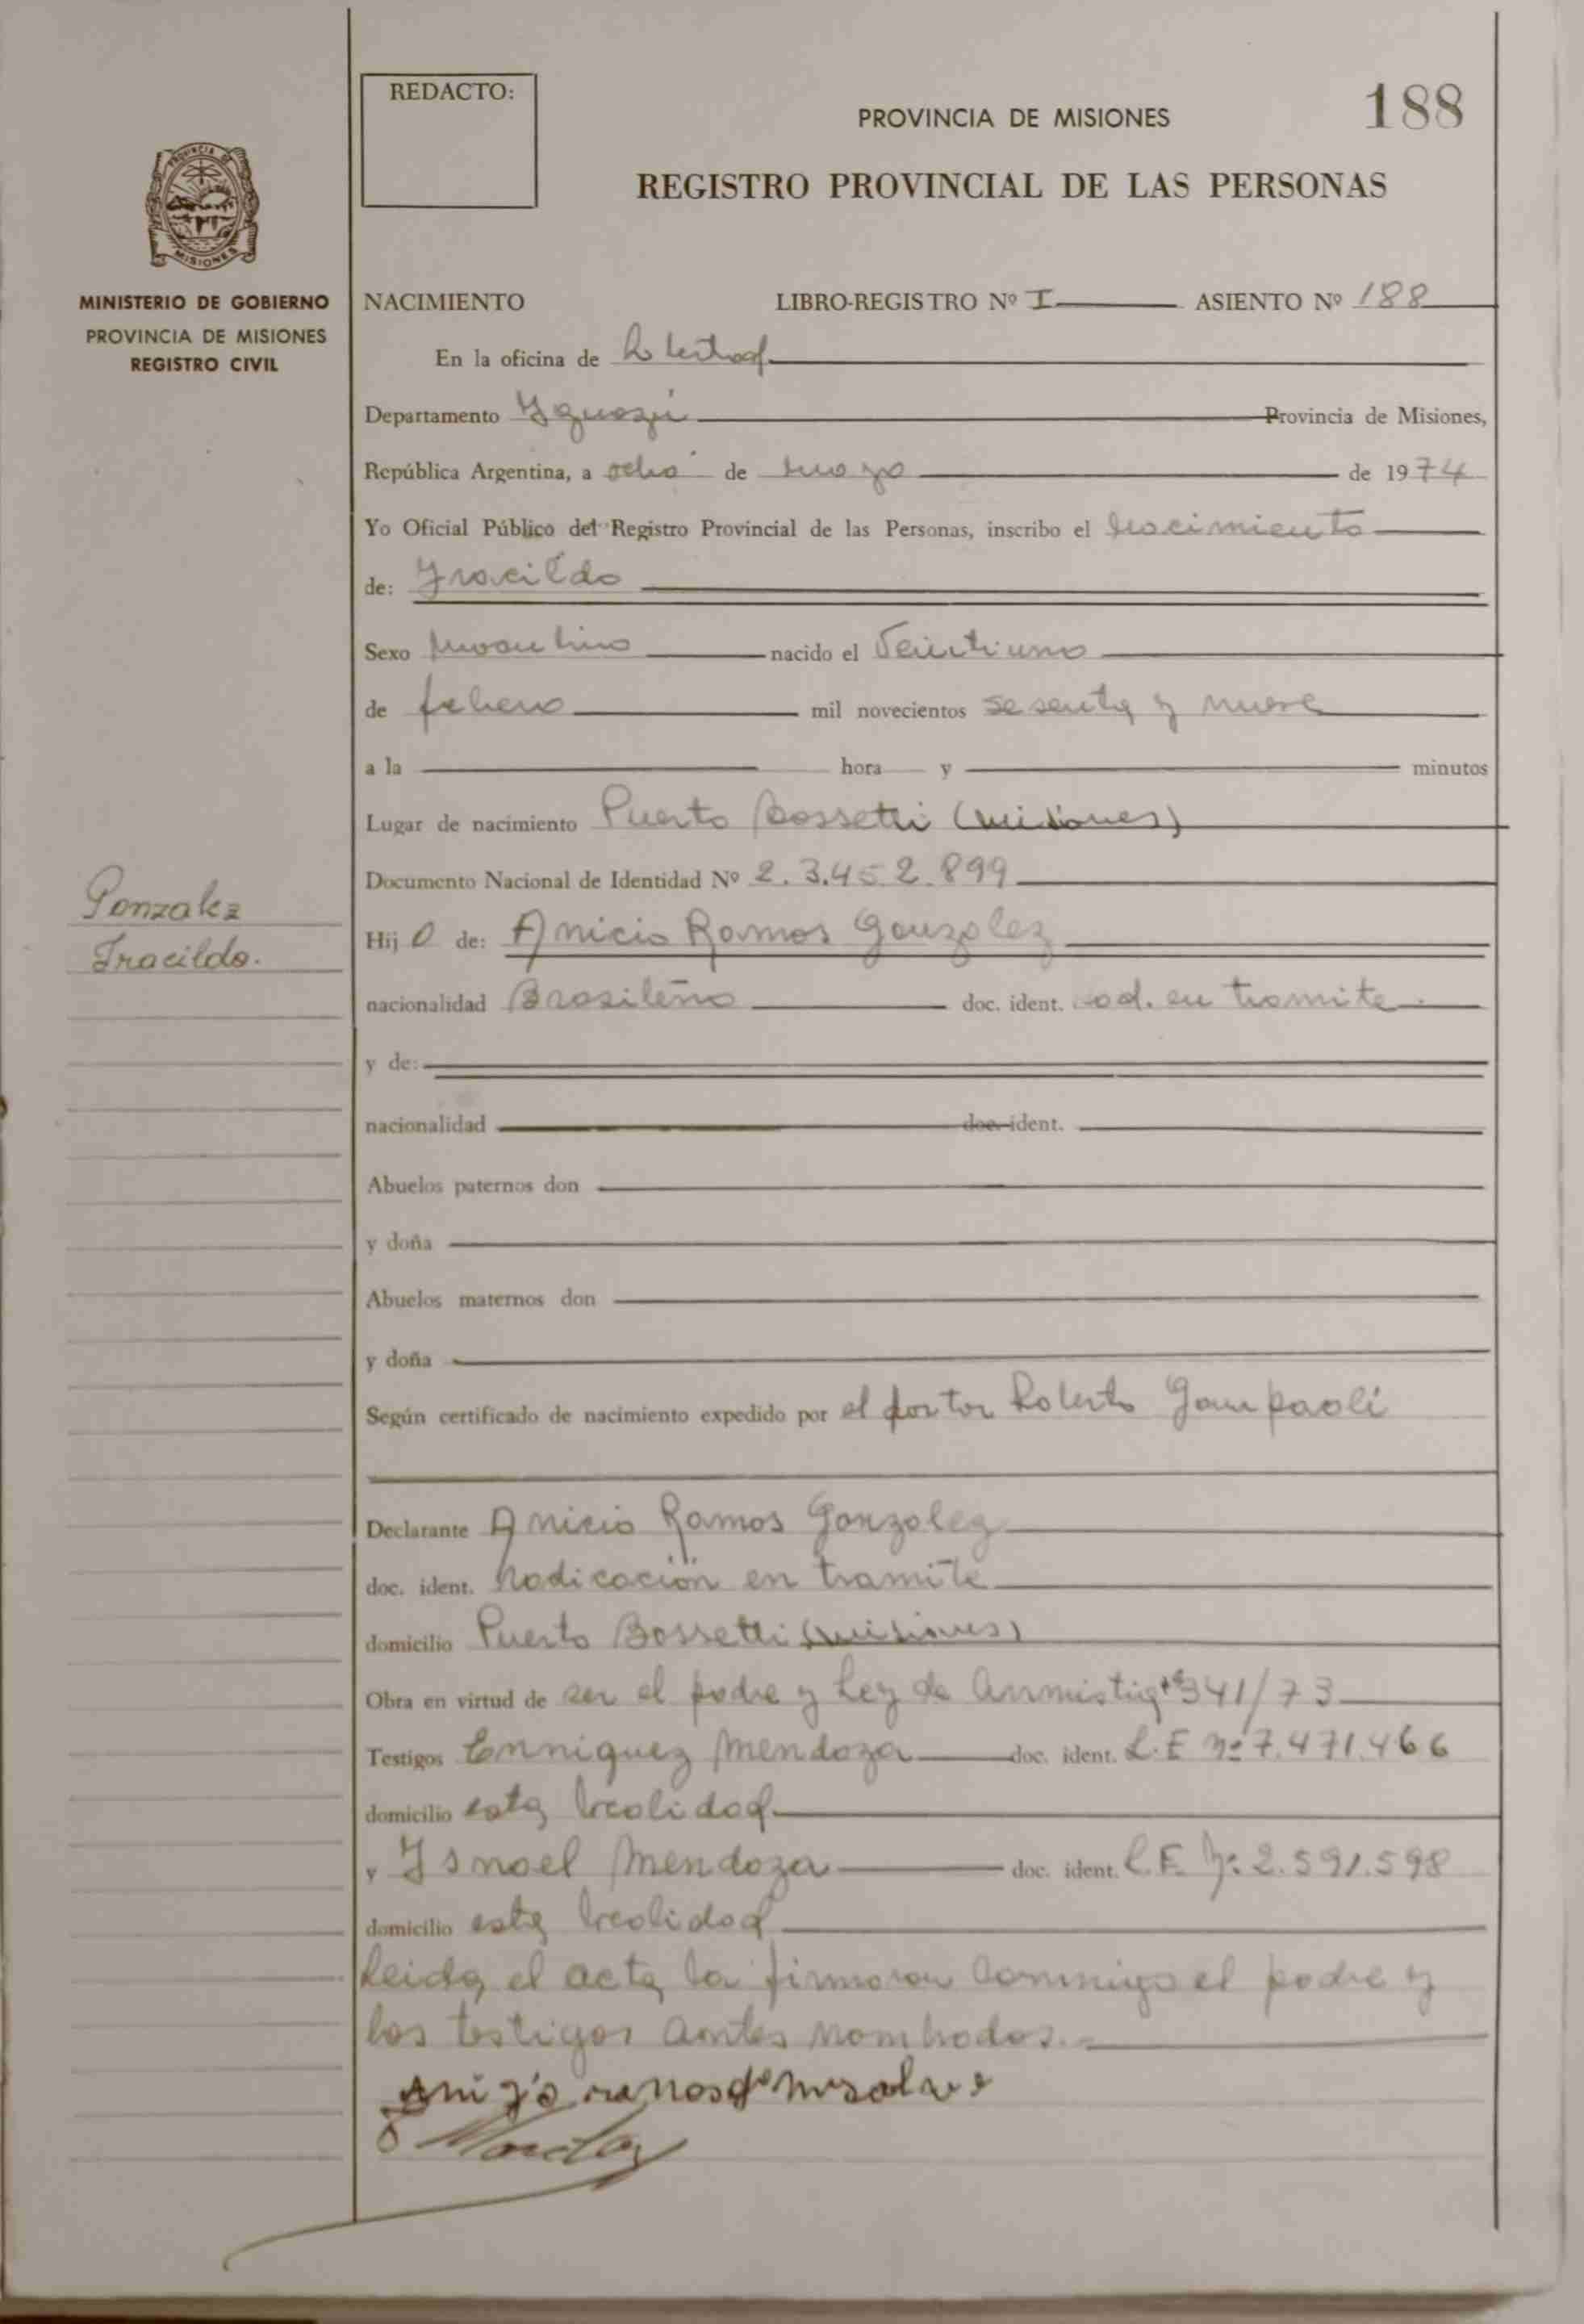 REDACTO:
188
PROVINCIA DE MISIONES
REGISTRO PROVINCIAL DE LAS PERSONAS
PROVINCIA DE
MISIONES
MINISTERIO DE GOBIERNO
PROVINCIA DE MISIONES
REGISTRO CIVIL
NACIMIENTO LIBRO-REGISTRO Nº I ASIENTO Nº 188
En la oficina de Libertad
Departamento Yguazú Provincia de Misiones,
República Argentina, a ocho de de 1974
Yo Oficial Público del Registro Provincial de las Personas, inscribo el nacimiento
de: Iracildo
Sexo Masculino nacido el Veintiuno
de febrero mil novecientos sesenta y nueve
a la hora y minutos
Lugar de nacimiento Puerto Bossetti (Misiones)
Documento Nacional de Identidad Nº 2.3.452.899
Gonzalez
Iracildo.
Hij o de: Anicio Ramos Gonzalez
nacionalidad Brasileño doc. ident. rad. en tramite
y de:
nacionalidad doc. ident.
Abuelos paternos don
y doña
Abuelos maternos don
y doña
Según certificado de nacimiento expedido por el doctor Roberto
Declarante Anicio Ramos Gonzalez
doc. ident. Radicación en tramite
domicilio Puerto Bossetti (Misiones)
Obra en virtud de ser el padre y Ley de Anmistia 341/73
Testigos Enniquez Mendoza doc. ident. L.E Nº 7.471.466
domicilio esta localidad
y Ismael Mendoza doc. ident. L.E. Nº 2.591.598
domicilio esta localidad
Leida el acta la firmaron conmigo el padre y
los testigos antes nombrados.